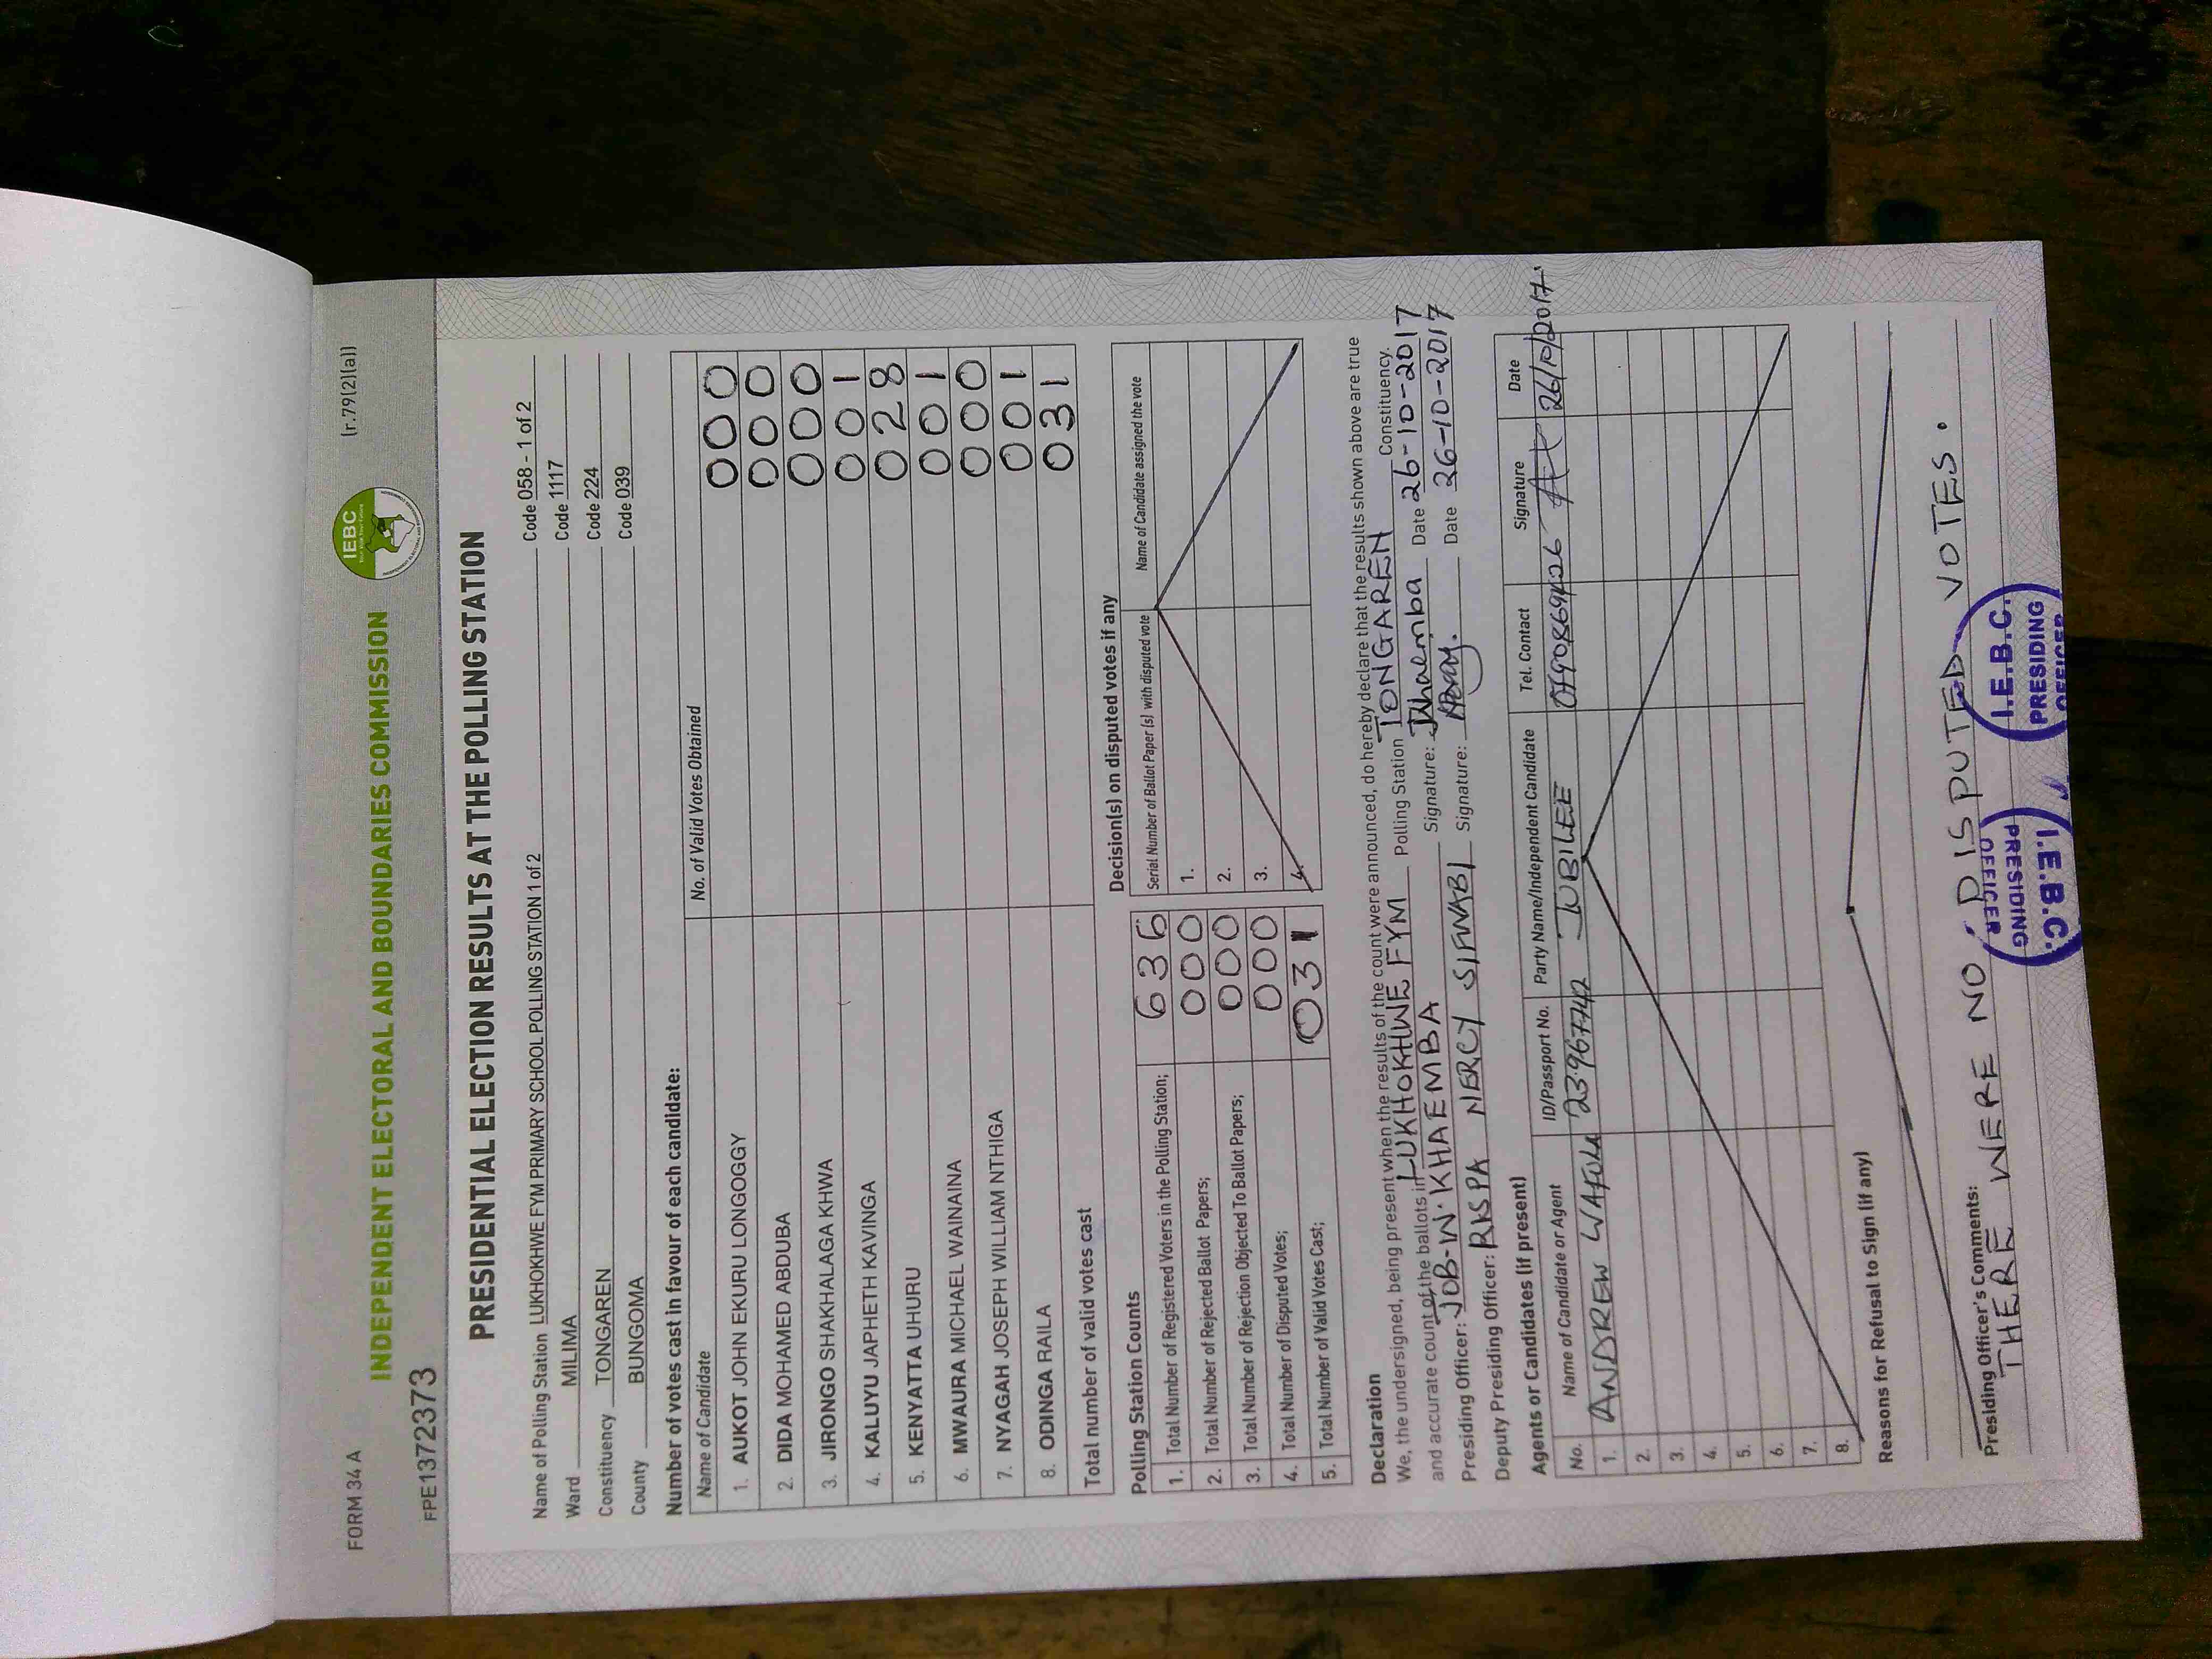 FORM 34 A
(r.79(2)(a))
IEBC
INDEPENDENT ELECTORAL AND BOUNDARIES COMMISSION
FPE1372373
PRESIDENTIAL ELECTION RESULTS AT THE POLLING STATION
Name of Polling Station LUKHOKHWE FYM PRIMARY SCHOOL POLLING STATION 1 of 2 Code 058 - 1 of 2
Ward MILIMA Code 1117
Constituency TONGAREN Code 224
County BUNGOMA Code 039
Number of votes cast in favour of each candidate:
Name of Candidate No. of Valid Votes Obtained
1. AUKOT JOHN EKURU LONGOGGY 000
2. DIDA MOHAMED ABDUBA 000
3. JIRONGO SHAKHALAGA KHWA 000
4. KALUYU JAPHETH KAVINGA 001
5. KENYATTA UHURU 028
6. MWAURA MICHAEL WAINAINA 001
7. NYAGAH JOSEPH WILLIAM NTHIGA 000
8. ODINGA RAILA 001
Total number of valid votes cast 031
Polling Station Counts
1. Total Number of Registered Voters in the Polling Station; 636
2. Total Number of Rejected Ballot Papers; 000
3. Total Number of Rejection Objected To Ballot Papers; 000
4. Total Number of Disputed Votes; 000
5. Total Number of Valid Votes Cast; 031
Decision(s) on disputed votes if any
Serial Number of Ballot Paper (s) with disputed vote Name of Candidate assigned the vote
1.
2.
3.
4.
Declaration
We, the undersigned, being present when the results of the count were announced, do hereby declare that the results shown above are true
and accurate count of the ballots in LUKHOKHWE FYM Polling Station TONGAREN Constituency.
Presiding Officer: JOB.W.KHAEMBA Signature: Date 26-10-2017
Deputy Presiding Officer: RISPA NERCY SIFWABI Signature: Date 26-10-2017
Agents or Candidates (if present)
No. Name of Candidate or Agent ID/Passport No. Party Name/Independent Candidate Tel. Contact Signature Date
1. ANDREW WAFULA 23967742 JUBILEE 0790869426 26/10/2017
2.
3.
4.
5.
6.
7.
8.
Reasons for Refusal to Sign (if any)
Presiding Officer's Comments:
THERE WERE NO DISPUTED VOTES.
I.E.B.C. PRESIDING OFFICER
I.E.B.C. PRESIDING OFFICER